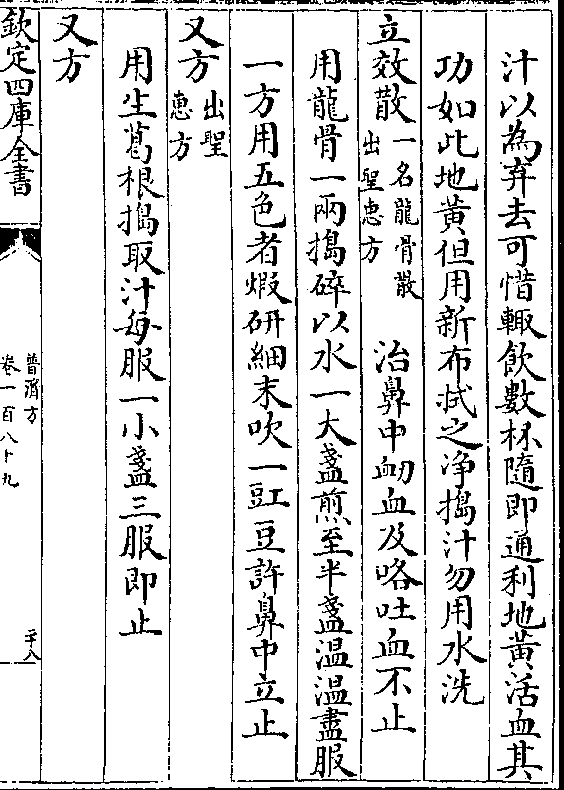 汁以為弃去可惜輙飲數杯隨即通利地黄活血其
功如此地黄但用新布拭之浄搗汁勿用水洗
立效散一名龍骨散出聖惠方　治鼻中衂血及咯吐血不止
用龍骨一兩搗碎以水一大盞煎至半盞温温盡服
一方用五色者煅研細末吹一豇豆許鼻中立止
又方出聖惠方
用生葛根搗取汁每服一小盞三服即止
又方
欽定四庫全書
普濟方
卷一百八十九
二十八